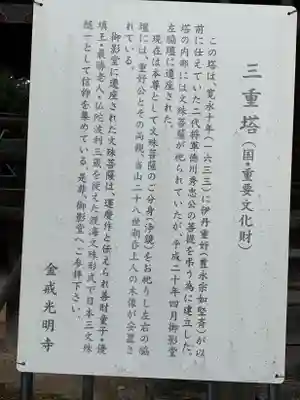 三重塔（国・重要文化財）
この塔は、寛永十年（一六三三）に伊丹重好（豊永宗如堅斎）が以
前に仕えていた二代将軍徳川秀忠公の菩提を弔う為に建立した。
塔の内部には文殊菩薩が祀られていたが、平成二十年四月御影堂
左脇壇に遷座された。
現在は本尊として文殊菩薩のご分身（浄鏡）をお祀りし左右の脇
壇には、重好公とその両親、当山二十八世潮呑上人の木像が安置さ
れている。
御影堂に遷座された文殊菩薩は、運慶作と伝えられ善財童子・優
填王・最勝老人・仏陀波利三蔵を従えた渡海文殊形式で日本三文殊
随一として信仰を集めている。是非、御影堂へご参拝下さい。
金戒光明寺